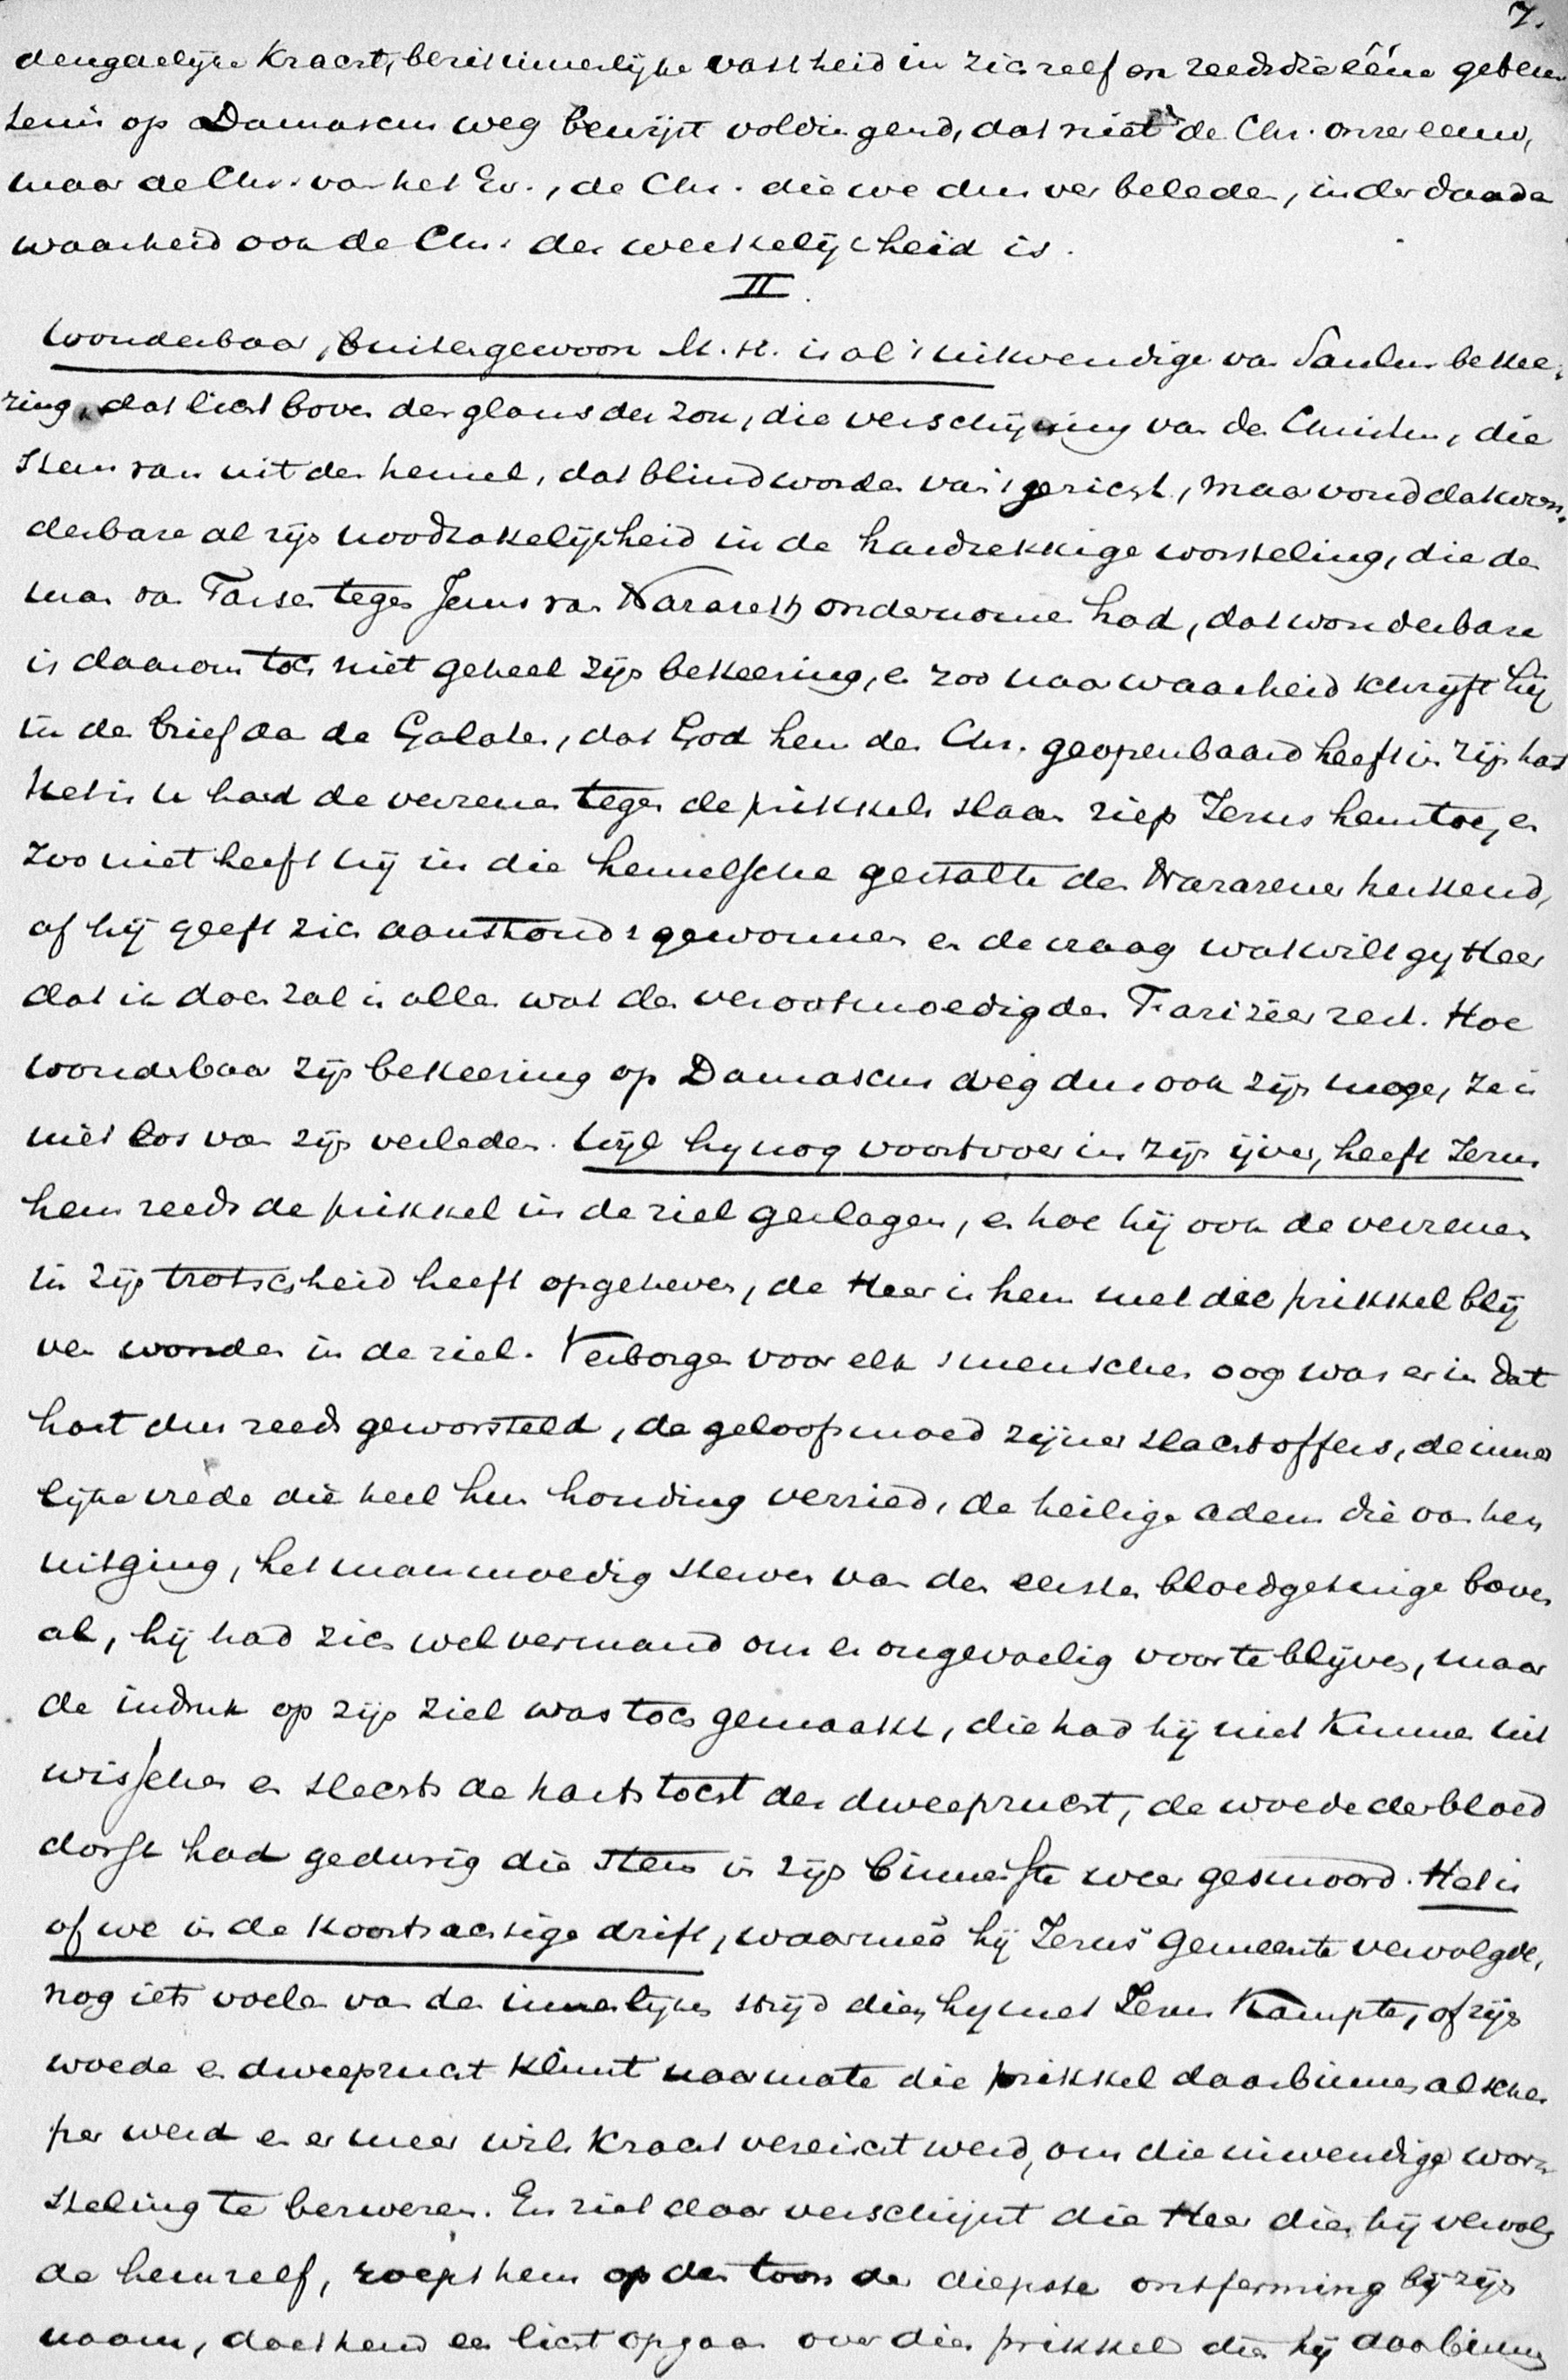 7.
deugdelijke kracht, berekenmerlijke vastheid in zich zelf en reeds die ééne gebeur
tenis op Damascus weg bewijst voldingend, dat niet de Chr. onzer eeuw,
maar de Chr. van het Ev., de Chr. die we dus ver beleden, in der daad a
waarheid ook de Chr. der werkelijkheid is.
II.
Wonderbaar, buitengewoon M. H. is al 't uitwendige van Saulus bekee-
ring, dat licht boven den glans der zon, die verschijning van den Christus, die
stem van uit den hemel, dat blind worden van 't gezicht, maar vond dat won-
derbare al zijn noodzakelijkheid in de hardnekkige worsteling, die de
man van Tarsen tegen Jezus van Nazareth ondernomen had, dat wonderbare
is daarom toch niet geheel zijn bekeering, en zoo naar waarheid schrijft hij
in den brief aan de Galaten, dat God hem den Chr. geopenbaard heeft in zijn hart
Het is u hard de verzenen tegen de prikkels slaan riep Jezus hem toe, en
zoo niet heeft hij in die hemelsche gestalte den Nazarener herkend,
of hij geeft zich aanstonds gewonnen en de vraag wat wilt gij Heer
dat ik doen zal is alles wat de verootmoedigde Farizéer zegt. Hoe
wonderbaar zijn bekeering op Damascus weg dus ook zijn moge, ze is
niet los van zijn verleden. Wijl hij nog voortvoer in zijn ijver, heeft Jezus
hem reeds de prikkel in de ziel geslagen, en hoe hij ook de verzenen
in zijn trotschheid heeft opgeheven, de Heer is hem met die prikkel blij
ven wonden in de ziel. Verborgen voor elk 's menschen oog was er in dat
hart dus reeds geworsteld, de geloofsmoed zijner slachtoffers, de inner
lijke vrede die heel hun houding verried, de heilige adem die van hen
uitging, het manmoedig sterven van den eersten bloedgetuige boven
al, hij had zich wel vermand om er ongevoelig voor te blijven, maar
de indruk op zijn ziel was toch gemaakt, die had hij niet kunnen uit
wisschen en slechts de hartstocht der dweepzucht, de woede der bloed
dorst had gedurig die stem in zijn binnenste weer gesmoord. Het is
of we in de koortsachtige drift, waarmeê hij Jezus' Gemeente vervolgde,
nog iets voelen van den innerlijken strijd dien hij met Jezus kampte, of zijn
woede en dweepzucht klimt naarmate die prikkel daarbinnen al scher
per werd en er meer wils kracht vereischt werd, om die inwendige wor-
steling te bezweren. En ziet daar verschijnt die Heer dien hij vervolg
de hemzelf, roept hem op den toon der diepste ontferming bij zijn
naam, doet hem een licht opgaan over dien prikkel die hij daarbinnen